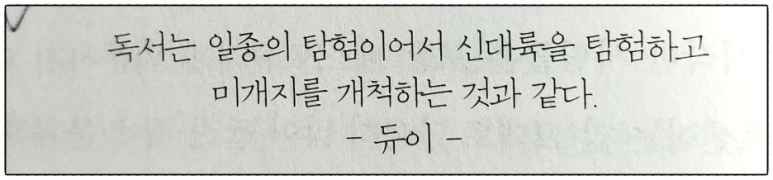 독서는 일종의 탐험이어서 신대륙을 탐험하고
미개지를 개척하는 것과 같다.
- 듀이 -